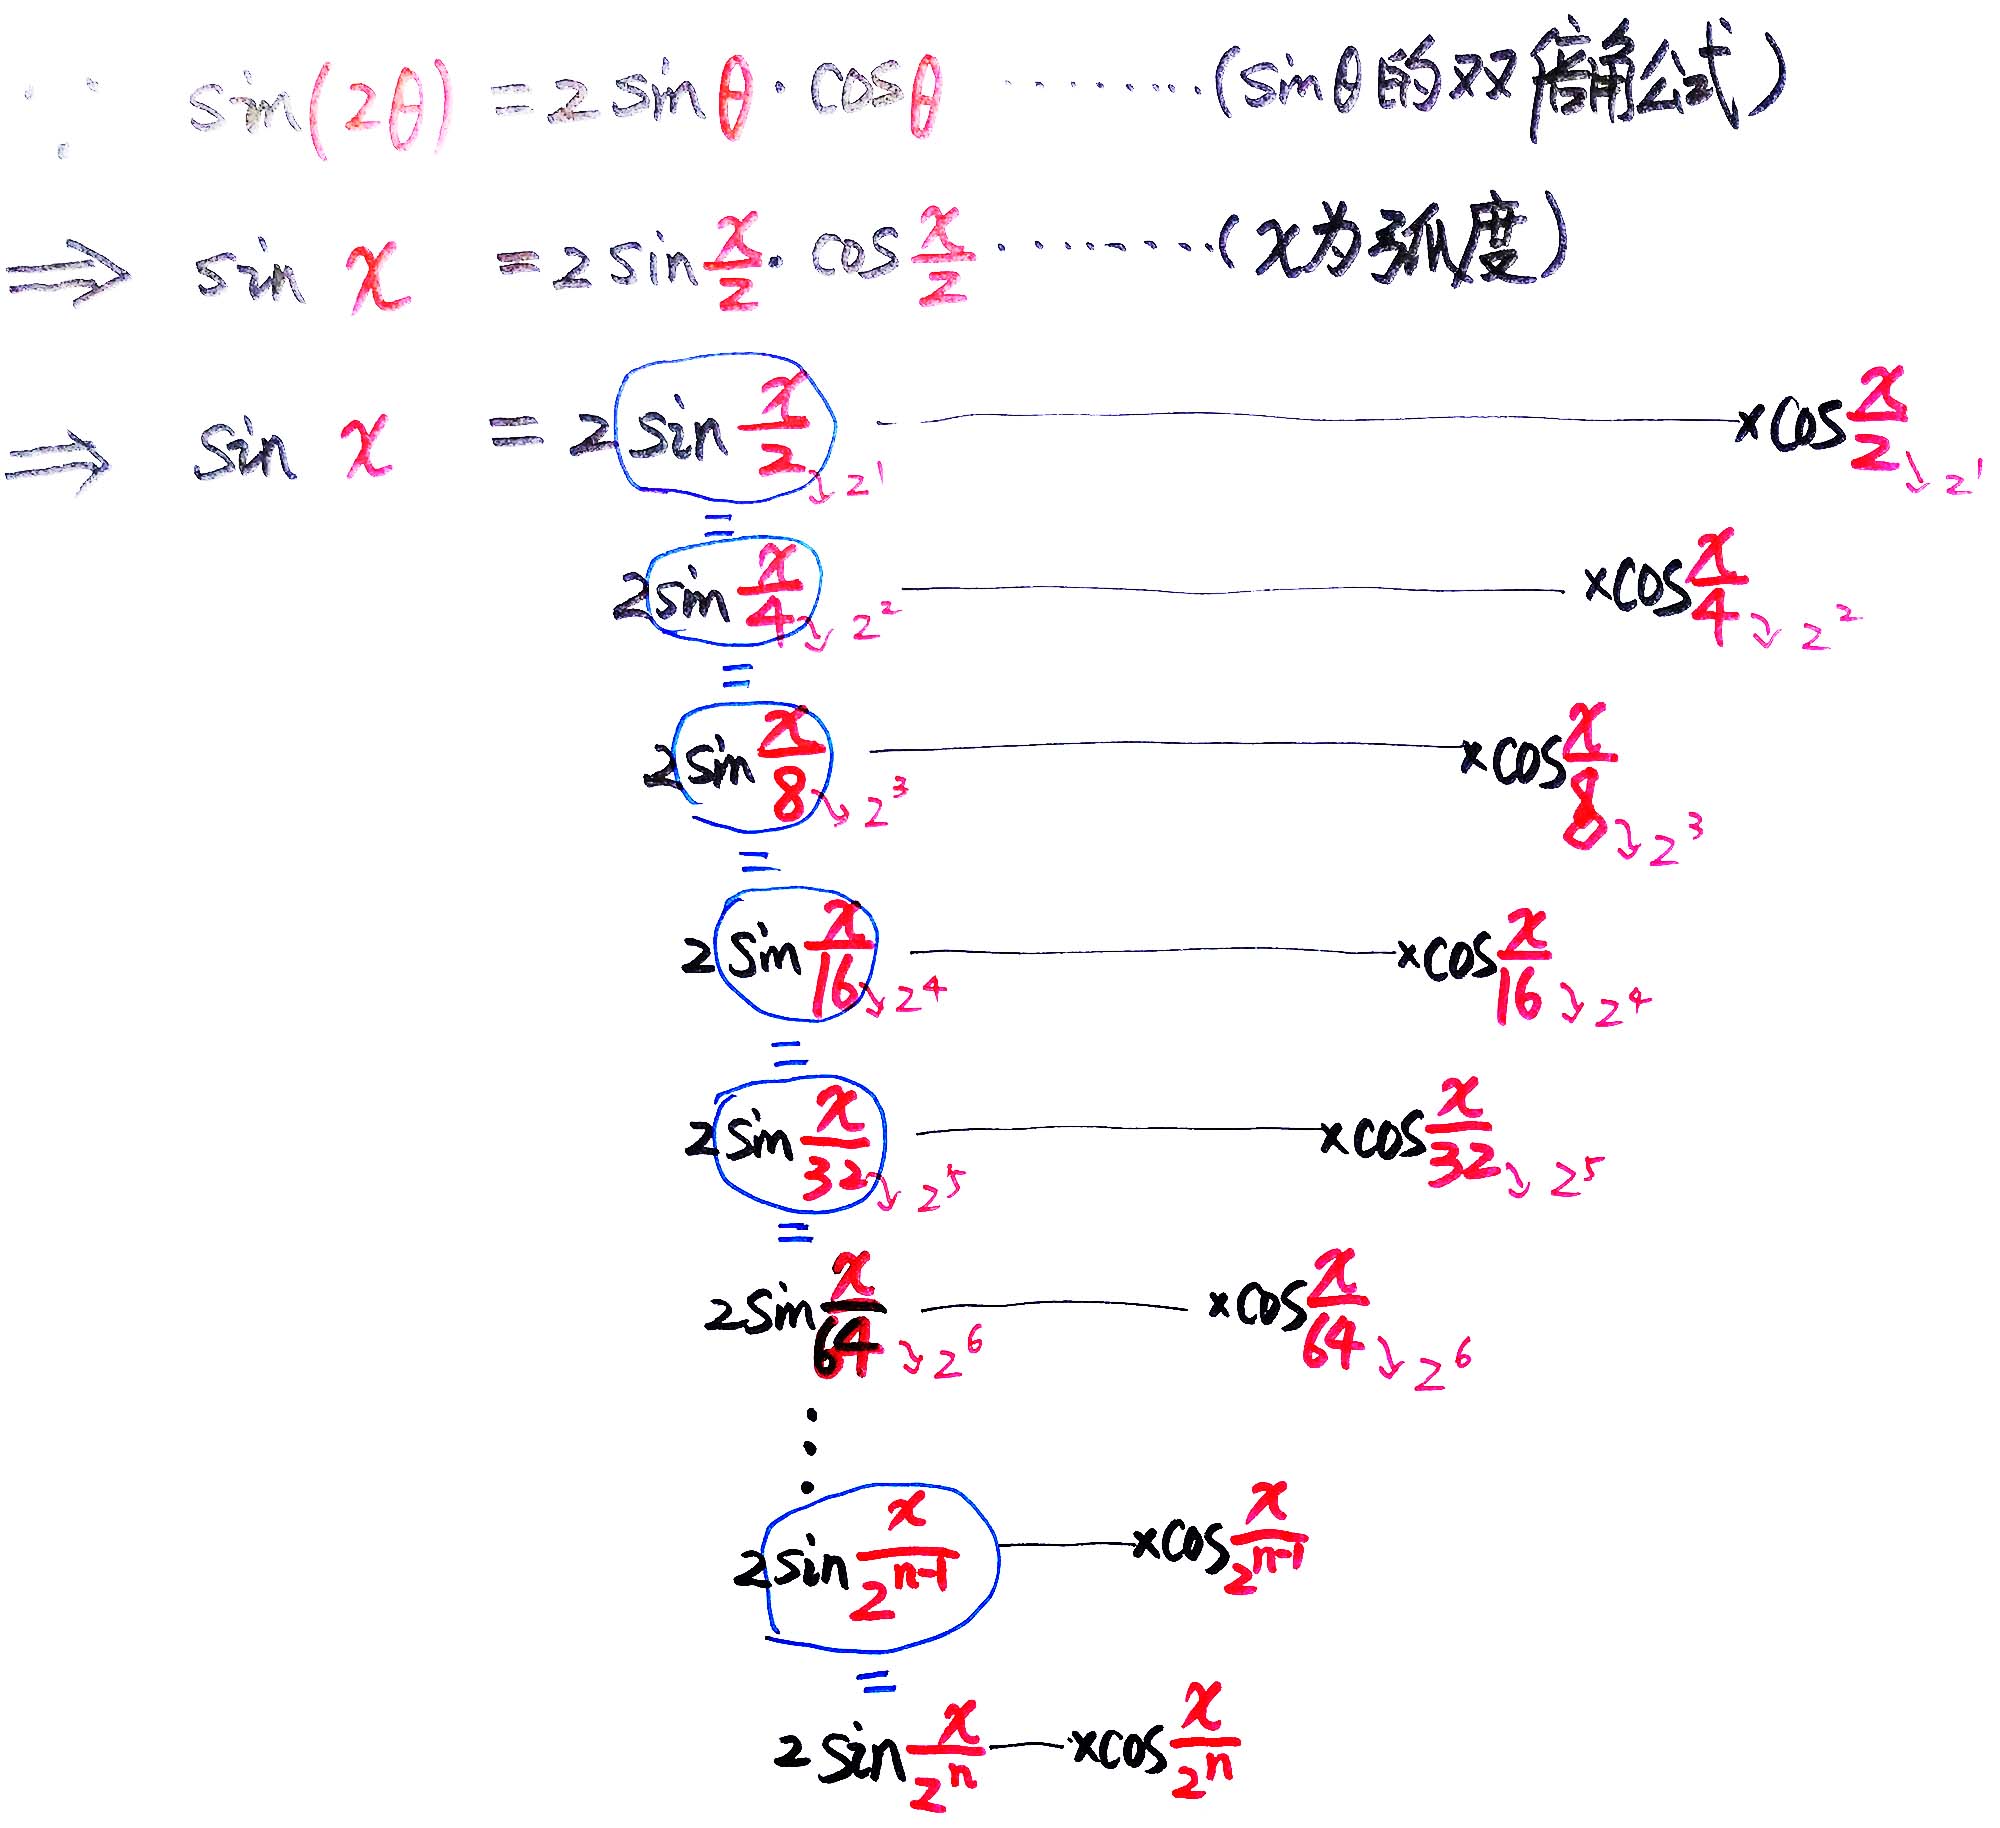 ∵ sin(2θ) = 2 sinθ · cosθ ········· (sinθ的双倍角公式)
⟹ sin x = 2 sin x/2 · cos x/2 ········· (x为弧度)
⟹ sin x = 2 sin x/2 ↘ 2¹ ——— × cos x/2 ↘ 2¹
=
2 sin x/4 ↘ 2² ——— × cos x/4 ↘ 2²
=
2 sin x/8 ↘ 2³ ——— × cos x/8 ↘ 2³
=
2 sin x/16 ↘ 2⁴ ——— × cos x/16 ↘ 2⁴
=
2 sin x/32 ↘ 2⁵ ——— × cos x/32 ↘ 2⁵
=
2 sin x/64 ↘ 2⁶ ——— × cos x/64 ↘ 2⁶
⋮
2 sin x/2ⁿ⁻¹ ——— × cos x/2ⁿ⁻¹
=
2 sin x/2ⁿ ——— × cos x/2ⁿ